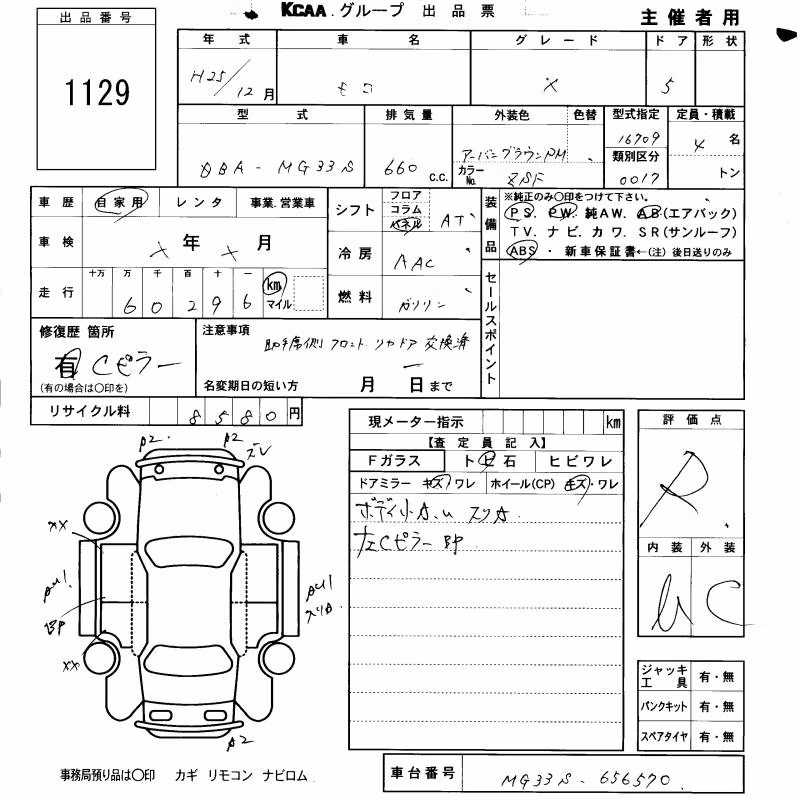 KCAA.グループ 出品票
主催者用
出品番号
1129
年式 車名 グレード ドア 形状
H25/12月 モコ X 5
型式 排気量 外装色 色替 型式指定 定員・積載
DBA-MG33S 660 c.c. アーバンブラウンPM 16709 4名
カラーNo. ZSF 類別区分 0017 トン
車歴 自家用 レンタ 事業.営業車
シフト フロア コラム パネル AT
装備品 ※純正のみ○印をつけて下さい。
PS. PW. 純AW. AB(エアバック)
TV. ナビ. カワ. SR(サンルーフ)
ABS ・ 新車保証書←(注)後日送りのみ
車検 X年X月
冷房 AAC
走行 十万 万 千 百 十 一 km マイル
60296
燃料 ガソリン
セールスポイント
修復歴 箇所
有 Cピラー
(有の場合は○印を)
注意事項
助手席側フロント リヤドア 交換済
名変期日の短い方 月 日まで
リサイクル料 8580円
現メーター指示 km
【査定員記入】
Fガラス ト ビ 石 ヒビワレ
ドアミラー キズ ワレ ホイール(CP) キズ・ワレ
ボディ小A.U スリA
左Cピラー BP
評価点
R
内装 外装
C
A2 A2
ズレ
XX
AU1
BP
XX
AU1
スリA
A2
ジャッキ工具 有・無
パンクキット 有・無
スペアタイヤ 有・無
事務局預り品は○印 カギ リモコン ナビロム
車台番号 MG33S-656570